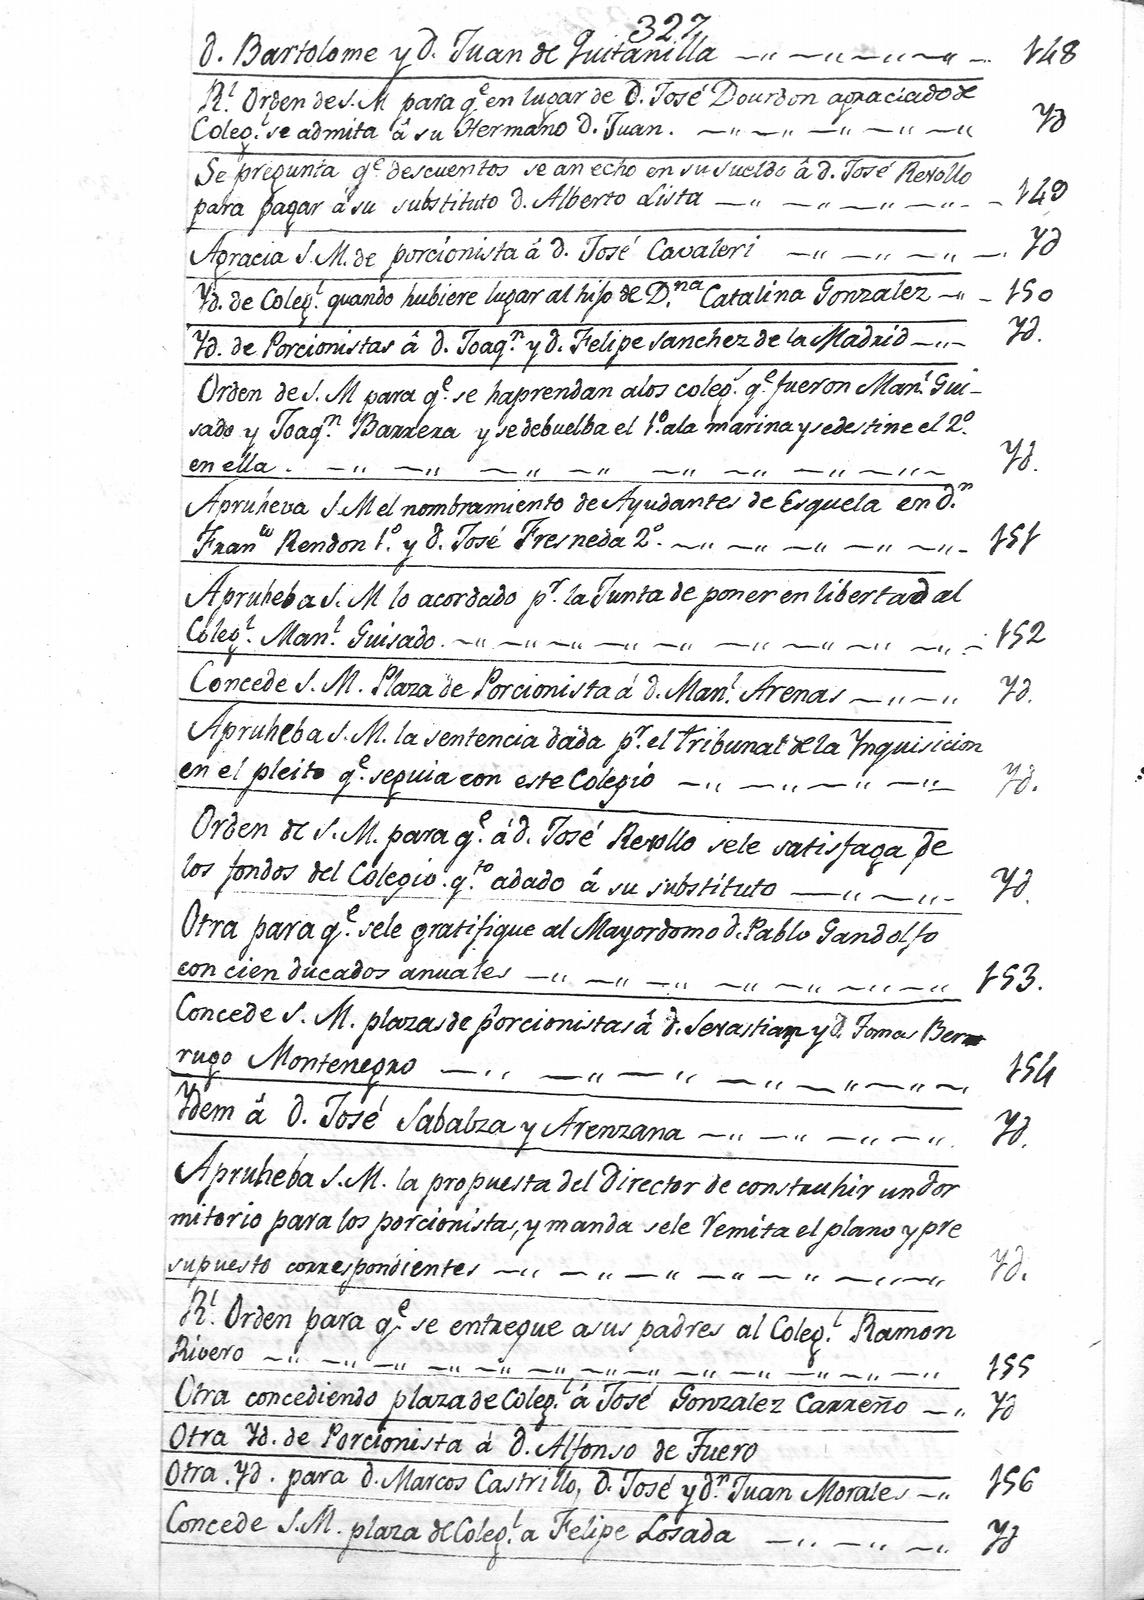 327
d. Bartolome y d. Juan de Quitanilla 148
Rl. Orden de S. M para qe. en lugar de D. José Dourdon agraciado de
Coleg.l se admita â su Hermano d. Juan. Yd
Se pregunta qe. descuentos se an echo en su sueldo â d. José Revollo
para pagar â su substituto d. Alberto Lista 149
Agracia S. M. de porcionista â d. José Cavaleri Yd
Yd. de Coleg.l quando hubiere lugar al hijo de D.na Catalina Gonzalez 150
Yd. de Porcionistas â d. Joaq.n y d. Felipe Sanchez de la Madrid Yd.
Orden de S. M para qe. se haprendan alos coleg.l qe. fueron Man.l Gui-
sado y Joaq.n Barrera y se debuelba el 1.o ala marina y sedestine el 2.o
en ella. Yd.
Apruheva S. M el nombramiento de Ayudantes de Esquela en d.n
Fran.co Rendon 1.o y d. José Fresneda 2.o 151
Apruheba S. M lo acordado pr. la Junta de poner en libertad al
Coleg.l Man.l Guisado. 152
Concede S. M. Plaza de Porcionista á d. Man.l Arenas Yd.
Apruheba S. M. la sentencia dada pr. el tribunal de la Ynquisicion
en el pleito qe. seguia con este Colegio Yd.
Orden de S. M. para qe. á d. José Revollo sele satisfaga de
los fondos del Colegio q.to adado â su substituto Yd.
Otra para qe. sele gratifique al Mayordomo d. Pablo Gandolfo
con cien ducados anuales 153.
Concede S. M. plazas de porcionistas â d. Sevastian y d. Tomas Ber
rugo Montenegro 154
Ydem â d. José Sabalza y Arenzana Yd.
Apruheba S. M. la propuesta del Director de construhir un dor
mitorio para los porcionistas, y manda sele remita el plano y pre
supuesto correspondientes Yd.
Rl. Orden para qe. se entregue asus padres al Coleg.l Ramon
Rivero 155
Otra concediendo plaza de Coleg.l â José Gonzalez Carreño Yd
Otra Yd. de Porcionista á d. Alfonso de Fuero
Otra. Yd. para d. Marcos Castrillo, d. José y d.n Juan Morales 156
Concede S. M. plaza de Coleg.l a Felipe Losada Yd